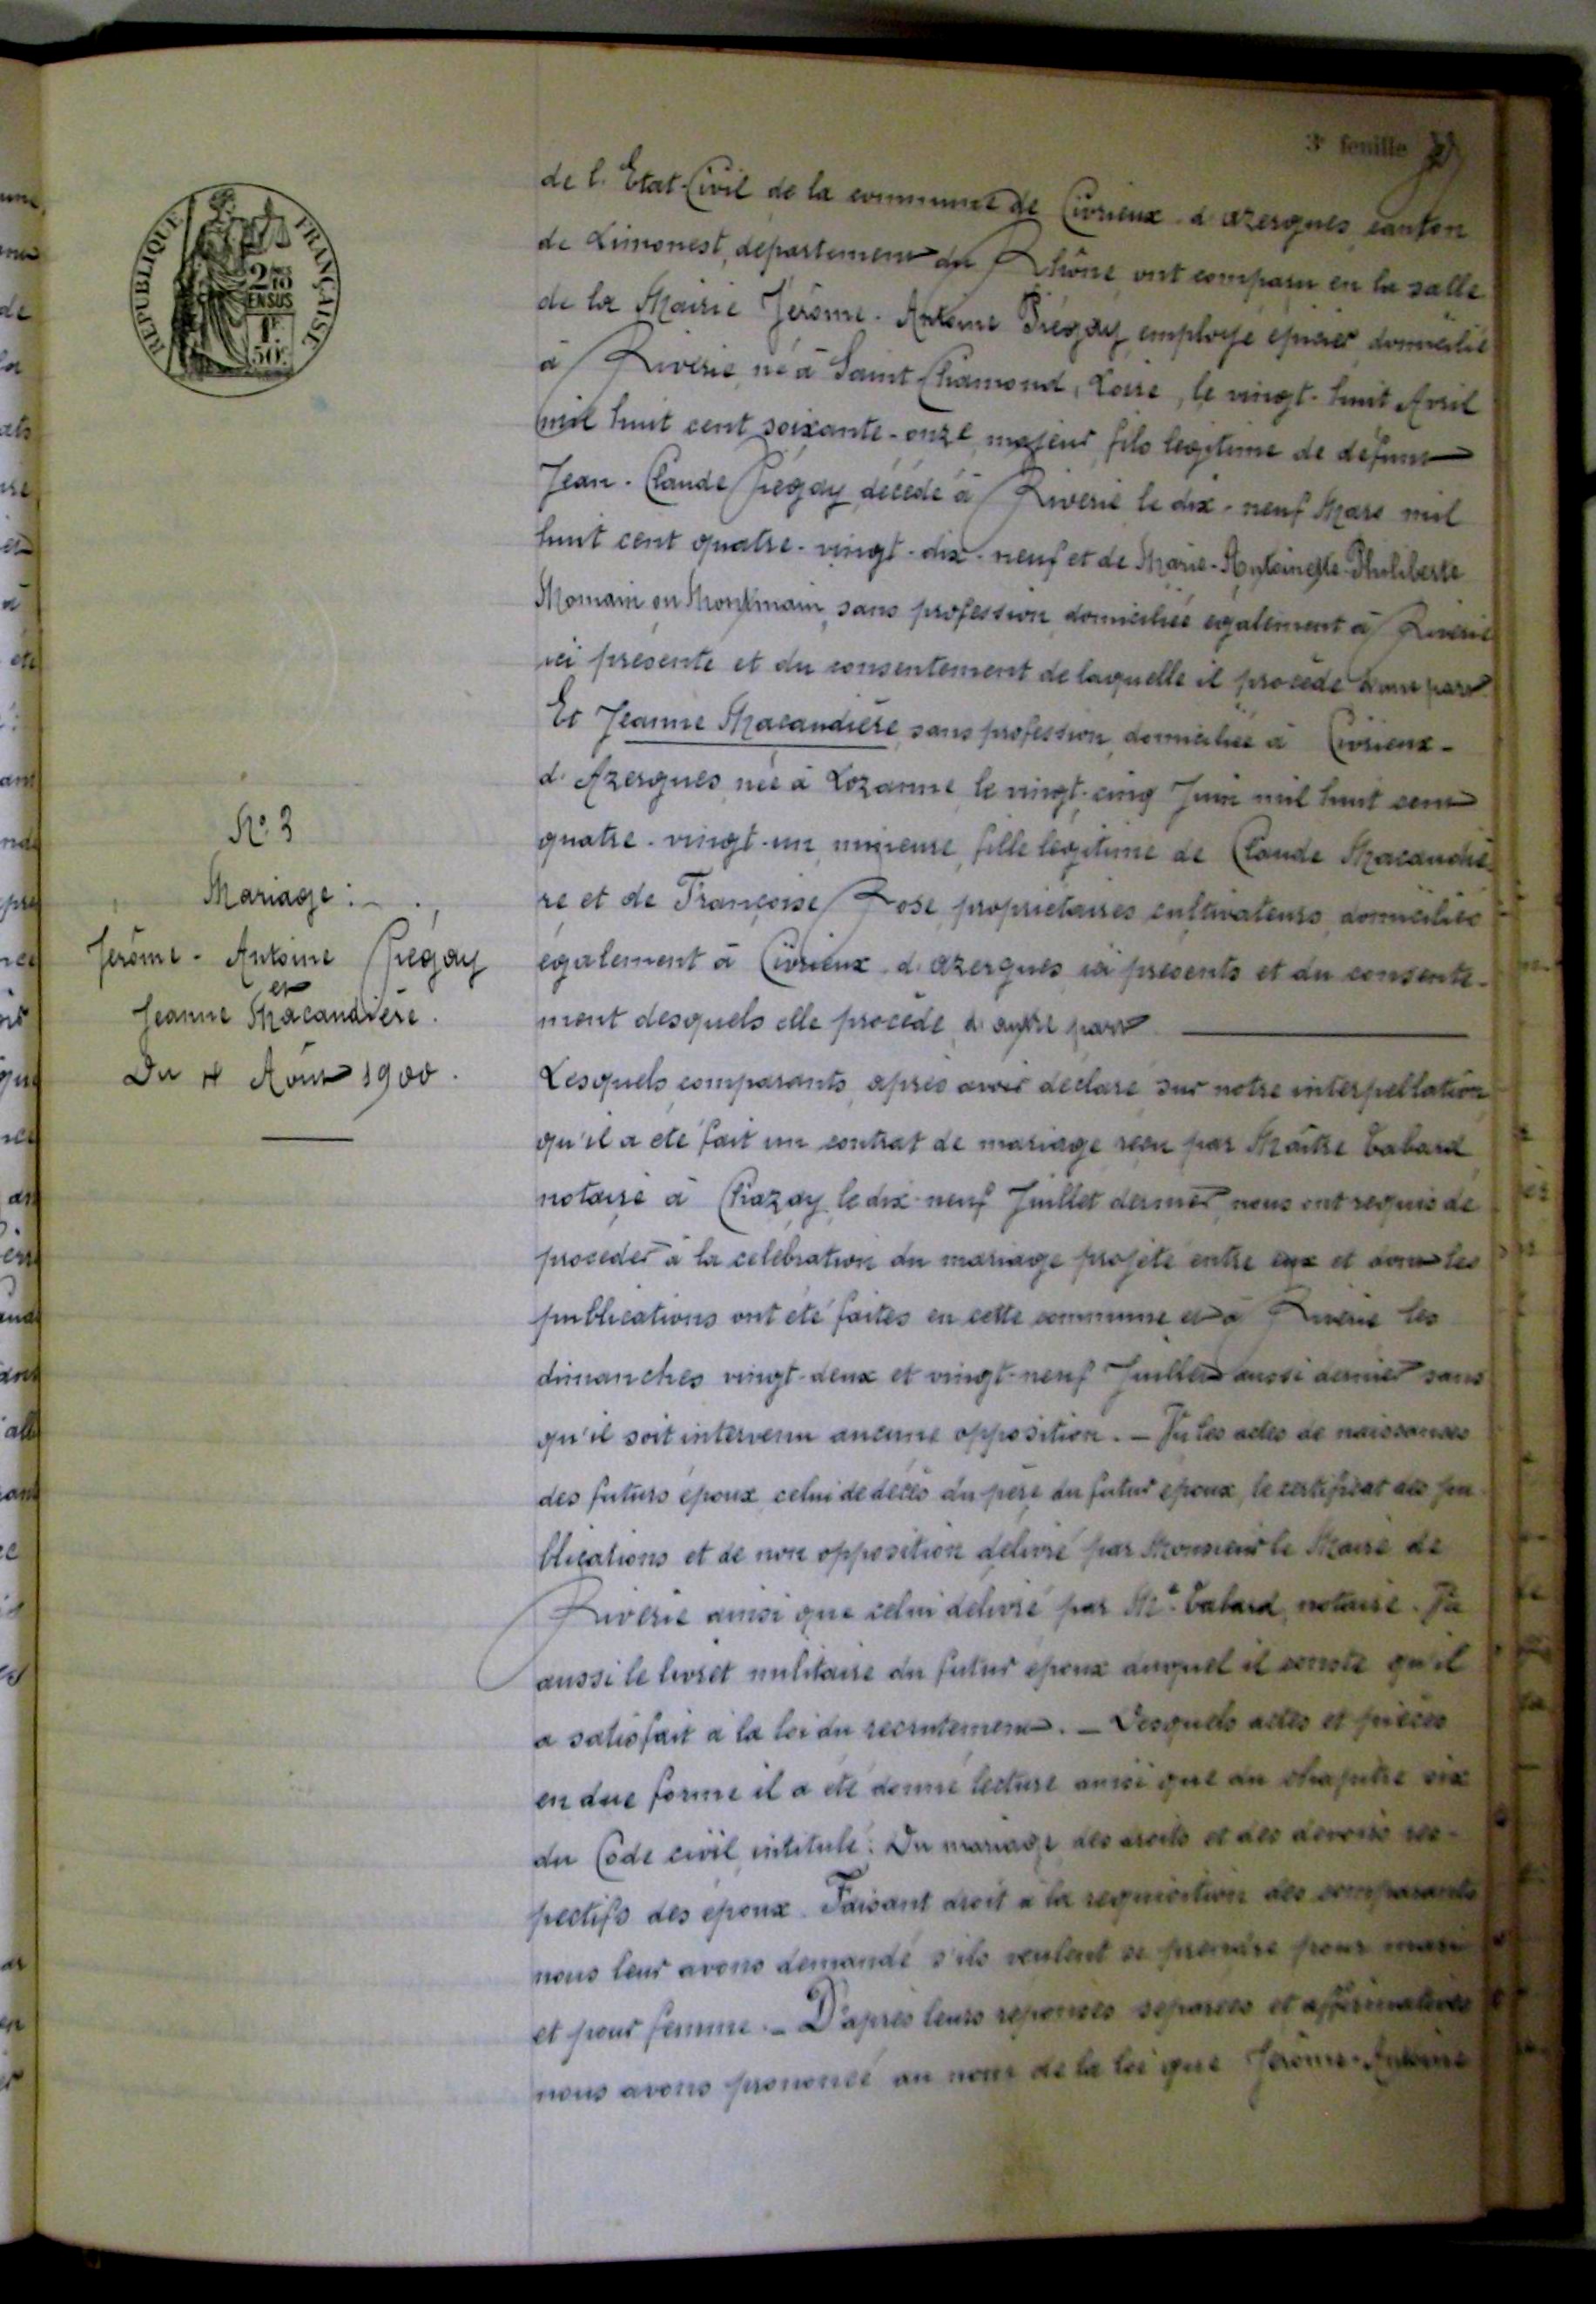 3e feuille
RÉPUBLIQUE FRANÇAISE
2/10
EN SUS
1f
50c
de l'Etat-Civil de la commune de Civrieux-d'azergues canton
de Limonest, département du Rhône ont comparu en la salle
de la Mairie Jérôme-Antoine Piégay employé épicier domicilié
à Riverie né à Saint Chamond, Loire, le vingt-huit Avril
mil huit cent soixante-onze majeur fils légitime de défunt
Jean-Claude Piégay décédé à Riverie le dix-neuf Mars mil
huit cent quatre-vingt-dix-neuf et de Marie-Antoinette-Philiberte
Momain ou Montmain, sans profession domiciliée également à Riverie
ici présente et du consentement de laquelle il procède d'une part
Et Jeanne Macandière sans profession domiciliée à Civrieux-
d'Azergues née à Lozanne le vingt-cinq Juin mil huit cent
quatre-vingt-un mineure fille légitime de Claude Macandiè-
re et de Françoise Rose propriétaires cultivateurs domiciliés
également à Civrieux-d'azergues ici présents et du consente-
ment desquels elle procède d'autre part
N° 3
Mariage :
Jérôme-Antoine Piégay
et
Jeanne Macandière.
Du 4 Août 1900.
Lesquels comparants après avoir déclaré sur notre interpellation
qu'il a été fait un contrat de mariage reçu par Maître Tabard
notaire à Chazay le dix-neuf Juillet dernier nous ont requis de
procéder à la célébration du mariage projeté entre eux et dont les
publications ont été faites en cette commune et à Riverie les
dimanches vingt-deux et vingt-neuf Juillet aussi dernier sans
qu'il soit intervenu aucune opposition. — Vu les actes de naissances
des futurs époux celui de décès du père du futur époux, le certificat des pu-
blications et de non opposition délivré par Monsieur le Maire de
Riverie ainsi que celui délivré par Me Tabard, notaire. Vu
aussi le livret militaire du futur époux duquel il conste qu'il
a satisfait à la loi du recrutement. — Desquels actes et pièces
en due forme il a été donné lecture ainsi que du chapitre six
du Code civil intitulé : Du mariage des droits et des devoirs res-
pectifs des époux. Faisant droit à la réquisition des comparants
nous leur avons demandé s'ils veulent se prendre pour mari
et pour femme. — D'après leurs réponses séparées et affirmatives
nous avons prononcé au nom de la loi que Jérôme-Antoine